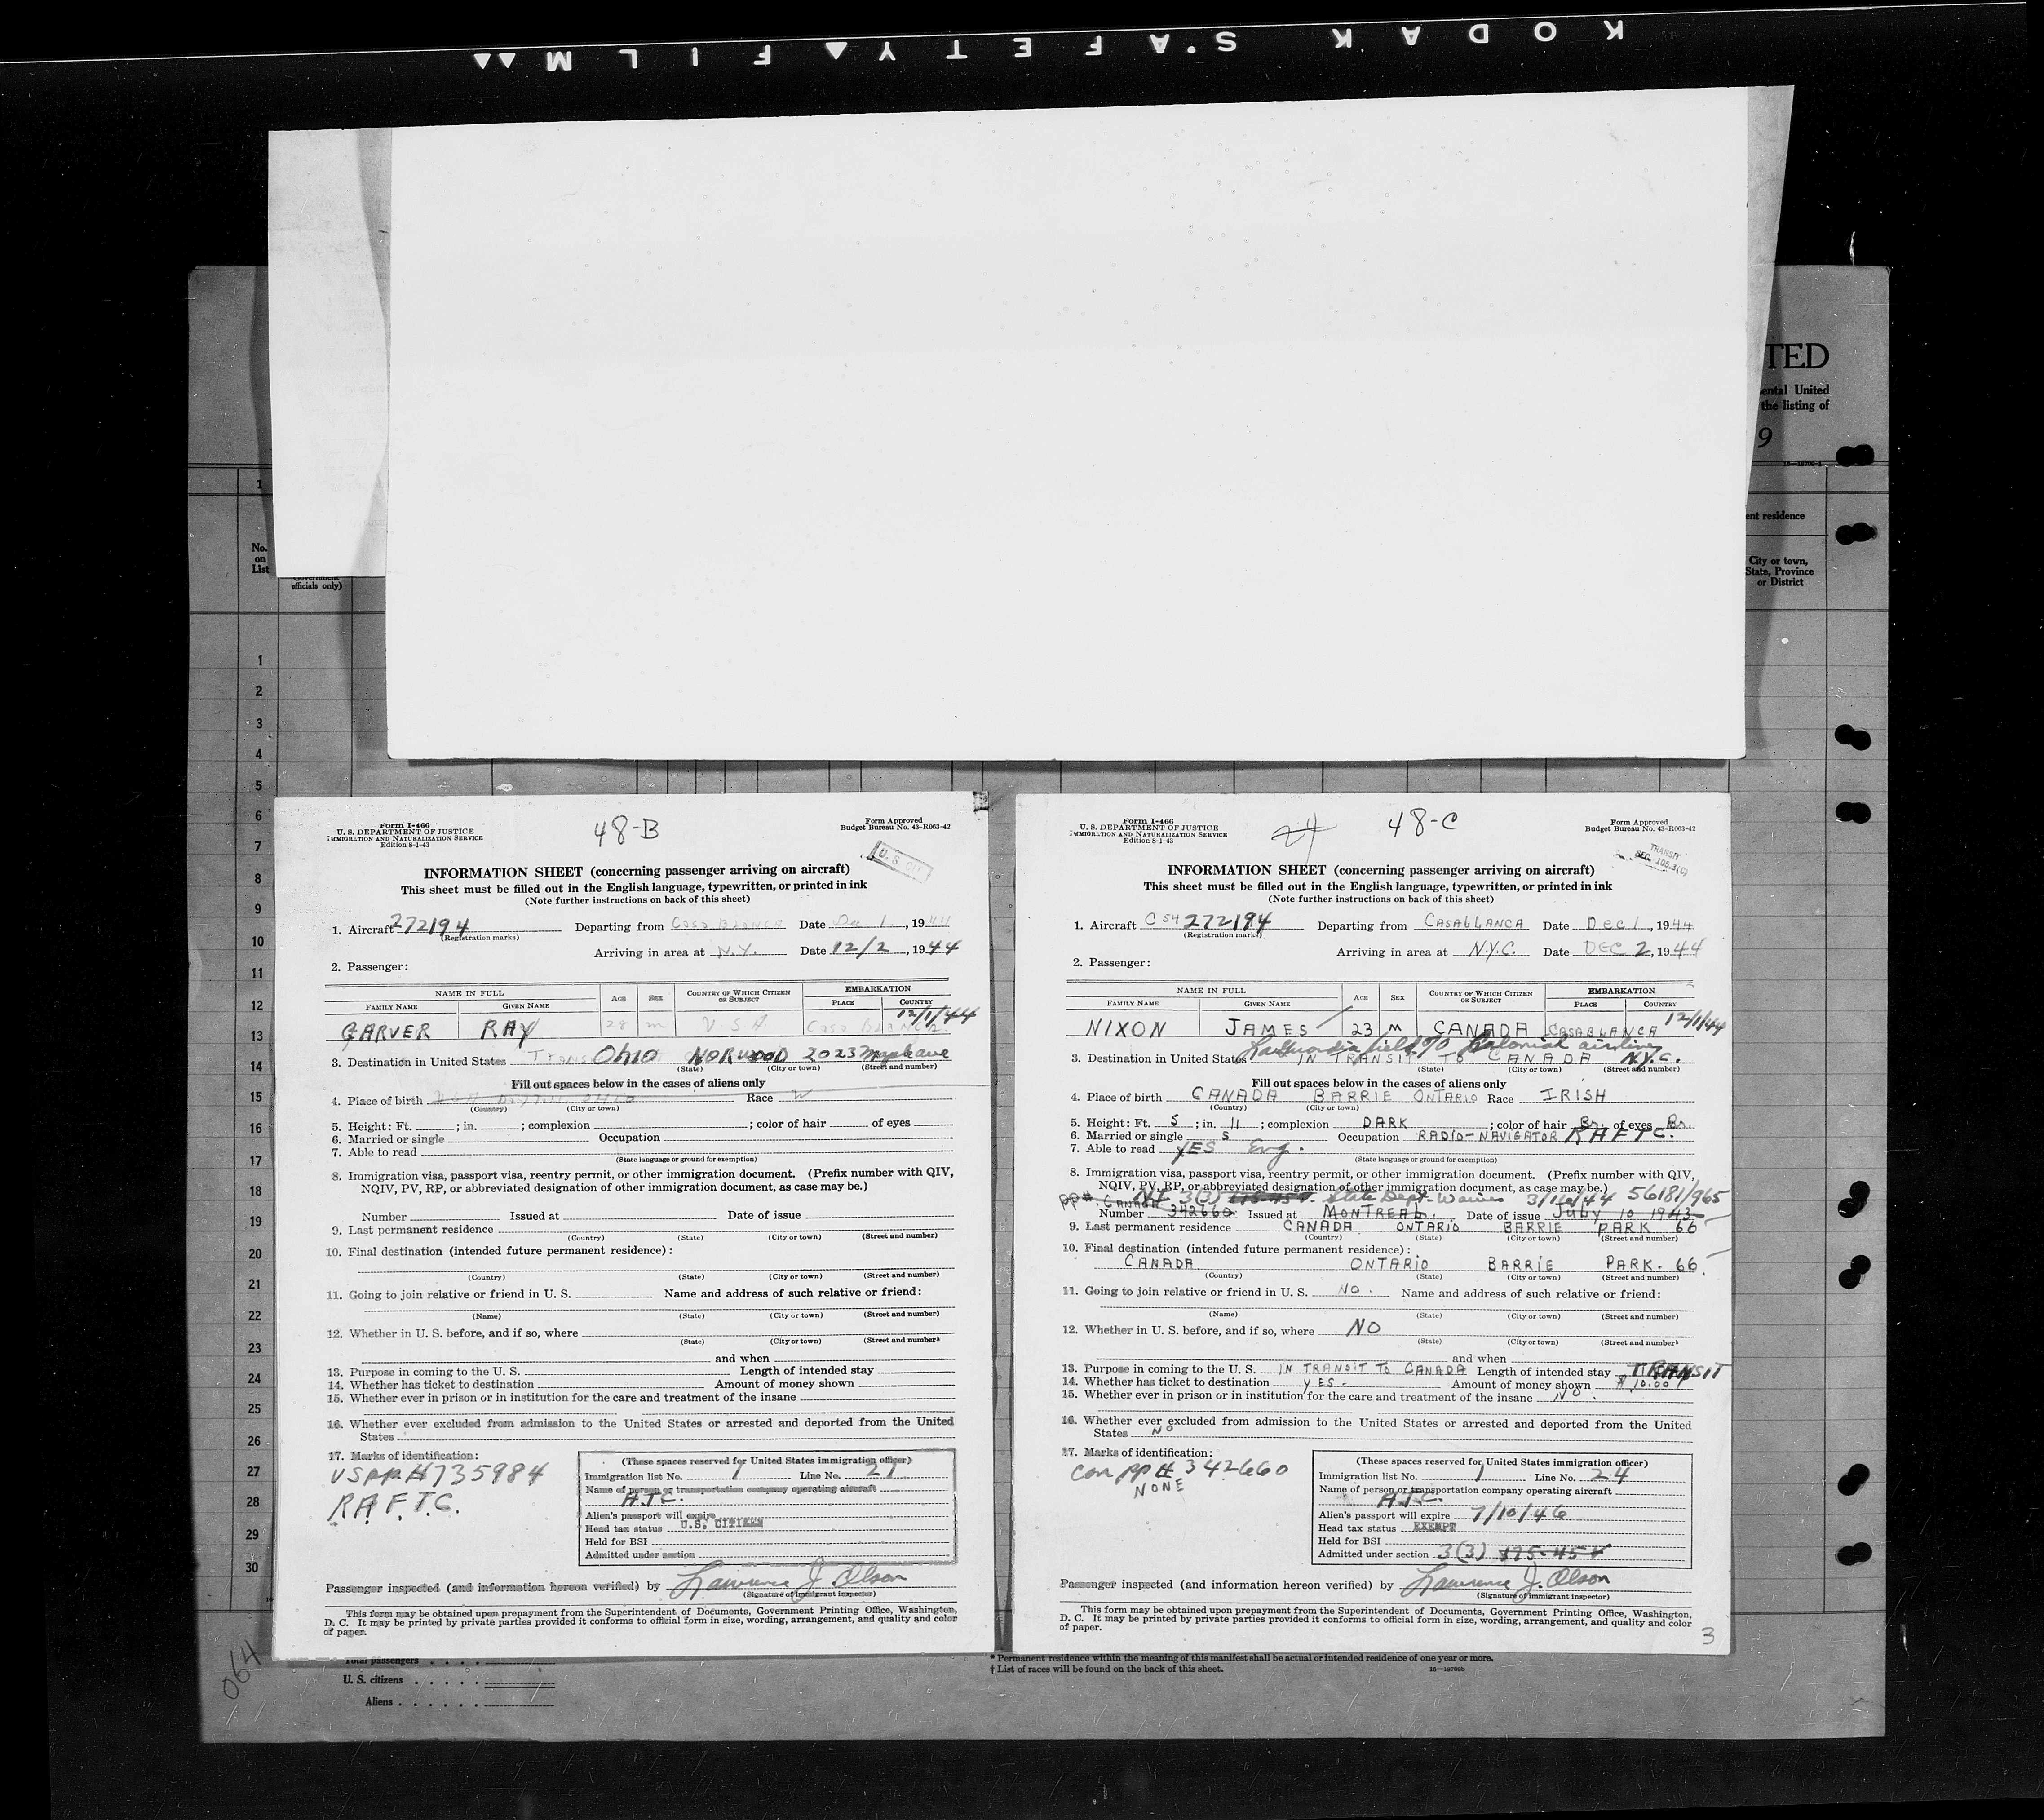 KODAK SAFETY FILM
TED
ental United
the listing of
9
1
ent residence
No.
on
List
Government
officials only)
City or town,
State, Province
or District
1
2
3
4
5
6
7
8
9
10
11
12
13
14
15
16
17
18
19
20
21
22
23
24
25
26
27
28
29
30
Form I-466
U. S. DEPARTMENT OF JUSTICE
IMMIGRATION AND NATURALIZATION SERVICE
Edition 8-1-43
48-B
Form Approved
Budget Bureau No. 43-R063-42
U.S. CIT
INFORMATION SHEET (concerning passenger arriving on aircraft)
This sheet must be filled out in the English language, typewritten, or printed in ink
(Note further instructions on back of this sheet)
1. Aircraft 272194 Departing from Casa Blanca Date Dec 1, 1944
(Registration marks)
Arriving in area at N.Y. Date 12/2, 1944
2. Passenger:
NAME IN FULL AGE SEX COUNTRY OF WHICH CITIZEN OR SUBJECT EMBARKATION
FAMILY NAME GIVEN NAME PLACE COUNTRY
12/1/44
GARVER RAY 28 m U.S.A Casa Blanca
3. Destination in United States Ohio NORWOOD 2023 Maple ave
(State) (City or town) (Street and number)
Fill out spaces below in the cases of aliens only
4. Place of birth OHIO Race W
(Country) (City or town)
5. Height: Ft. ; in. ; complexion ; color of hair of eyes
6. Married or single Occupation
7. Able to read
(State language or ground for exemption)
8. Immigration visa, passport visa, reentry permit, or other immigration document. (Prefix number with QIV,
NQIV, PV, RP, or abbreviated designation of other immigration document, as case may be.)
Number Issued at Date of issue
9. Last permanent residence
(Country) (State) (City or town) (Street and number)
10. Final destination (intended future permanent residence):
(Country) (State) (City or town) (Street and number)
11. Going to join relative or friend in U. S. Name and address of such relative or friend:
(Name) (State) (City or town) (Street and number)
12. Whether in U. S. before, and if so, where
(State) (City or town) (Street and number)
and when
13. Purpose in coming to the U. S. Length of intended stay
14. Whether has ticket to destination Amount of money shown
15. Whether ever in prison or in institution for the care and treatment of the insane
16. Whether ever excluded from admission to the United States or arrested and deported from the United
States
17. Marks of identification:
US pp. # 735984
R.A.F.T.C.
(These spaces reserved for United States immigration officer)
Immigration list No. 1 Line No. 21
Name of person or transportation company operating aircraft
A.T.C.
Alien's passport will expire
Head tax status U.S. CITIZEN
Held for BSI
Admitted under section
Passenger inspected (and information hereon verified) by Lawrence J. Olson
(Signature of immigrant inspector)
This form may be obtained upon prepayment from the Superintendent of Documents, Government Printing Office, Washington,
D. C. It may be printed by private parties provided it conforms to official form in size, wording, arrangement, and quality and color
of paper.
Form I-466
U. S. DEPARTMENT OF JUSTICE
IMMIGRATION AND NATURALIZATION SERVICE
Edition 8-1-43
24
48-C
Form Approved
Budget Bureau No. 43-R063-42
TRANSIT
SEC. 105.3(c)
INFORMATION SHEET (concerning passenger arriving on aircraft)
This sheet must be filled out in the English language, typewritten, or printed in ink
(Note further instructions on back of this sheet)
1. Aircraft C54 272194 Departing from CASABLANCA Date Dec 1, 1944
(Registration marks)
Arriving in area at N.Y.C. Date DEC 2, 1944
2. Passenger:
NAME IN FULL AGE SEX COUNTRY OF WHICH CITIZEN OR SUBJECT EMBARKATION
FAMILY NAME GIVEN NAME PLACE COUNTRY
12/1/44
NIXON JAMES 23 M CANADA CASABLANCA
LaGuardia field c/o Colonial airlines
3. Destination in United States IN TRANSIT TO CANADA N.Y.C.
(State) (City or town) (Street and number)
Fill out spaces below in the cases of aliens only
4. Place of birth CANADA BARRIE ONTARIO Race IRISH
(Country) (City or town)
5. Height: Ft. 5 ; in. 11 ; complexion DARK ; color of hair Br. of eyes Br.
6. Married or single S Occupation RADIO-NAVIGATOR RAFTC.
7. Able to read YES Eng.
(State language or ground for exemption)
8. Immigration visa, passport visa, reentry permit, or other immigration document. (Prefix number with QIV,
NQIV, PV, RP, or abbreviated designation of other immigration document, as case may be.)
PP#. CANADA 3(3) State Dept. Waives 3/16/44 56181/965
Number 342660 Issued at MONTREAL. Date of issue July 10 1943
9. Last permanent residence CANADA ONTARIO BARRIE PARK 66
(Country) (State) (City or town) (Street and number)
10. Final destination (intended future permanent residence):
CANADA ONTARIO BARRIE PARK. 66.
(Country) (State) (City or town) (Street and number)
11. Going to join relative or friend in U. S. NO. Name and address of such relative or friend:
(Name) (State) (City or town) (Street and number)
12. Whether in U. S. before, and if so, where NO
(State) (City or town) (Street and number)
and when
13. Purpose in coming to the U. S. IN TRANSIT TO CANADA Length of intended stay TRANSIT
14. Whether has ticket to destination YES. Amount of money shown $10.00
15. Whether ever in prison or in institution for the care and treatment of the insane NO.
16. Whether ever excluded from admission to the United States or arrested and deported from the United
States NO
17. Marks of identification:
Can pp # 342660
NONE
(These spaces reserved for United States immigration officer)
Immigration list No. 1 Line No. 24
Name of person or transportation company operating aircraft
A.T.C.
Alien's passport will expire 7/10/46
Head tax status EXEMPT
Held for BSI
Admitted under section 3(3) 175-45
Passenger inspected (and information hereon verified) by Lawrence J. Olson
(Signature of immigrant inspector)
This form may be obtained upon prepayment from the Superintendent of Documents, Government Printing Office, Washington,
D. C. It may be printed by private parties provided it conforms to official form in size, wording, arrangement, and quality and color
of paper.
3
064
Total passengers
U. S. citizens
Aliens
* Permanent residence within the meaning of this manifest shall be actual or intended residence of one year or more.
† List of races will be found on the back of this sheet.